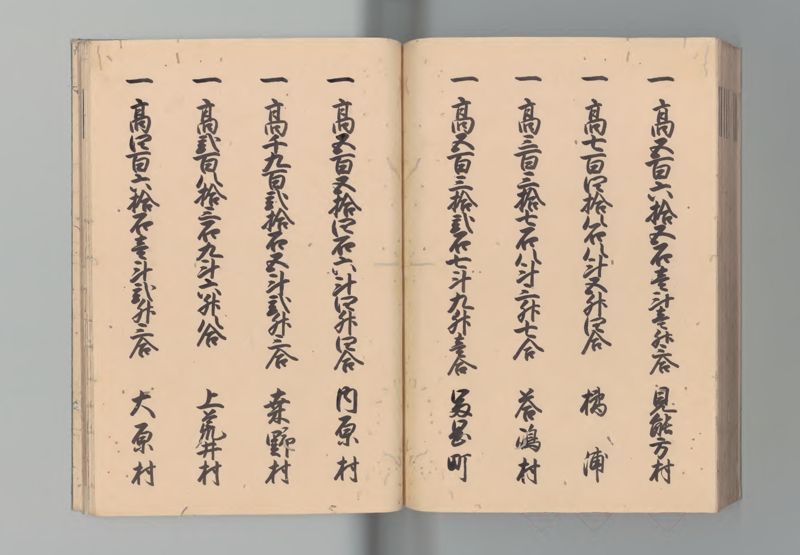 一 高五百六拾五石壱斗壱升三合 見能方村
一 高七百四拾八石八斗五升四合 橘浦
一 高三百三拾七石八斗三升七合 答嶋村
一 高五百三拾弐石七斗九升壱合 富岡町
一 高五百五拾四石六斗四升四合 内原村
一 高千九百弐拾石五斗弐升三合 桑野村
一 高弐百八拾三石九斗六升八合 上荒井村
一 高四百六拾石壱斗弐升三合 大原村